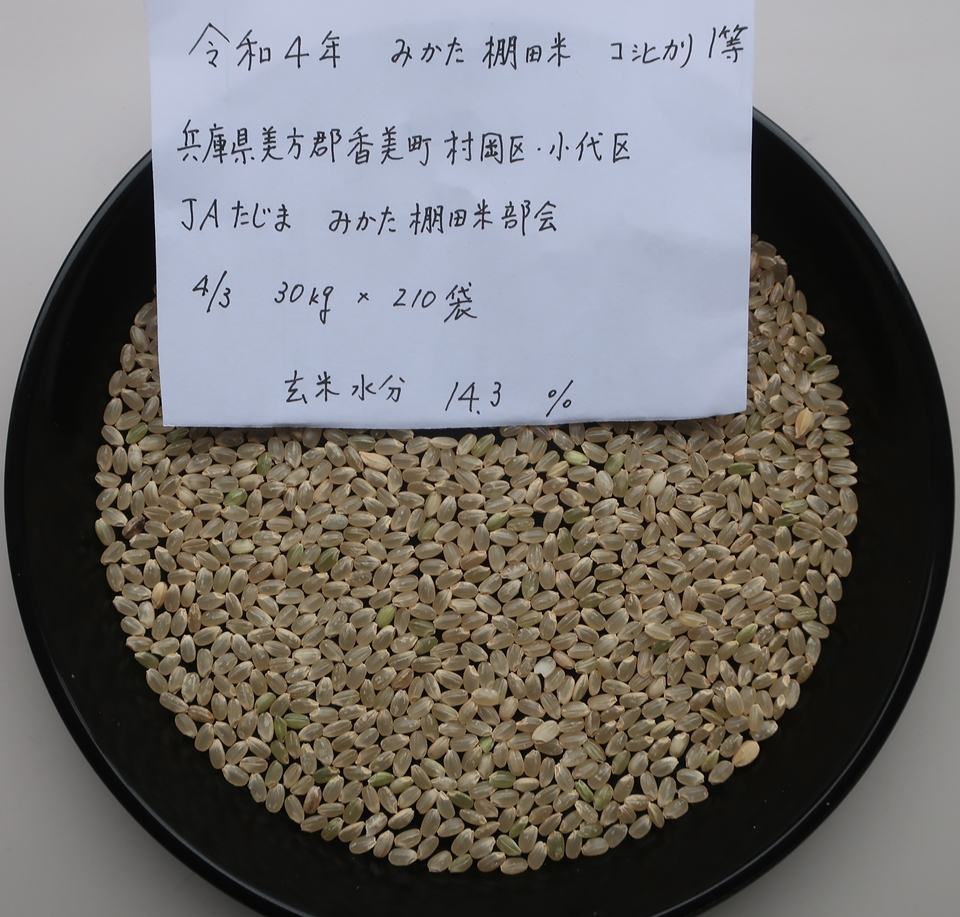 令和4年 みかた棚田米 コシヒカリ1等
兵庫県美方郡香美町村岡区・小代区
JAたじま みかた棚田米部会
4/3 30kg × 210袋
玄米水分 14.3 %